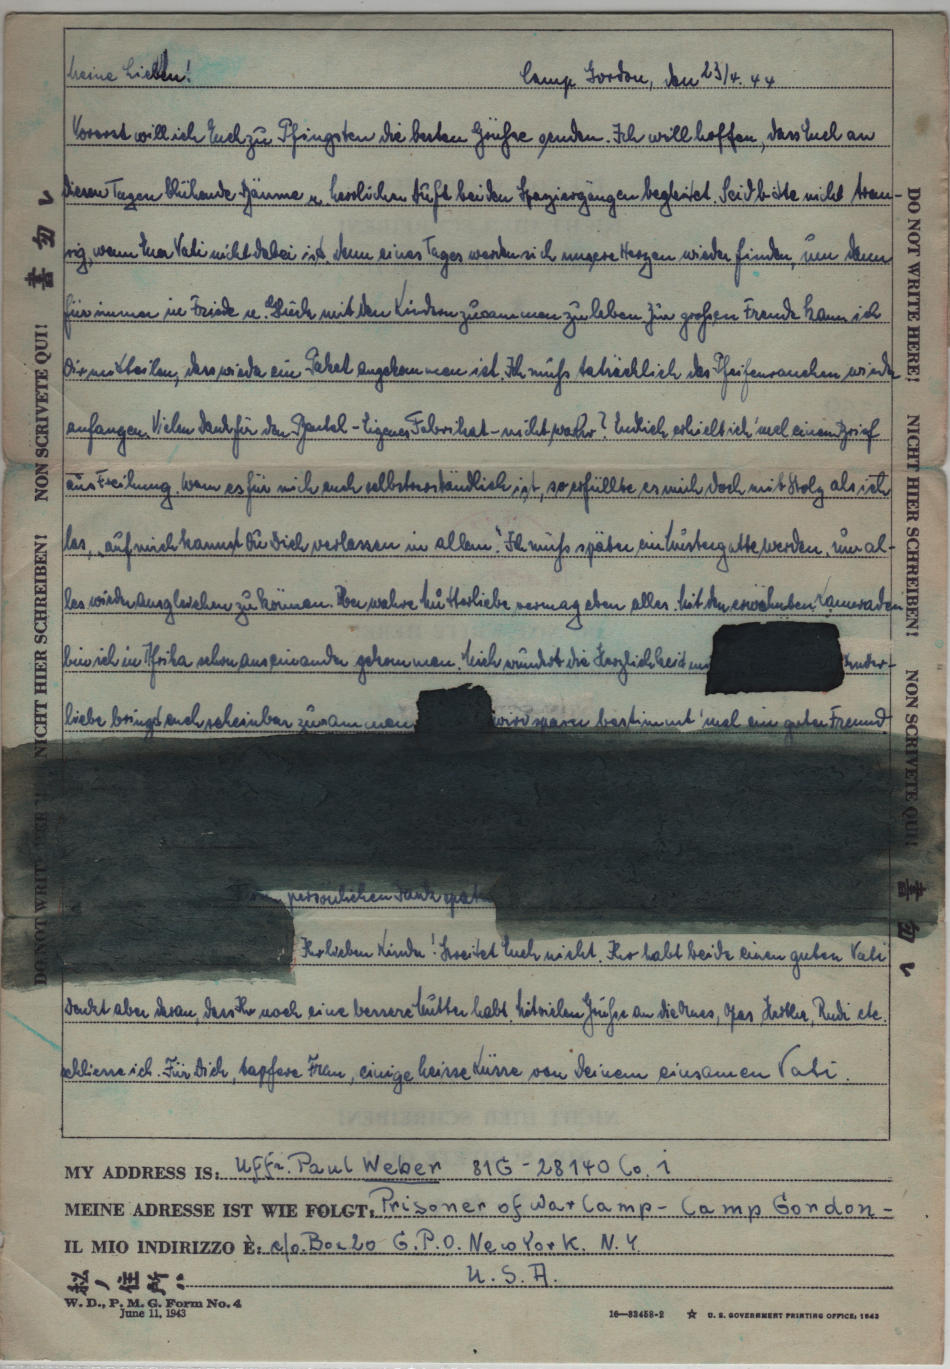 Meine Lieben! Camp Gordon, den 23/4. 44
Vorerst will ich Euch zu Pfingsten die besten Grüße senden. Ich will hoffen, dass Euch an
diesen Tagen blühende Bäume u. herrlicher Duft bei den Spaziergängen begleitet. Seid bitte nicht trau-
rig, wenn Euer Vati nicht dabei ist, denn eines Tages werden sich unsere Herzen wieder finden, um dann
für immer in Friede u. Glück mit den Kindern zusammen zu leben. Zur großen Freude kann ich
Dir mitteilen, dass wieder ein Paket angekommen ist. Ich muß tatsächlich das Pfeifenrauchen wieder
anfangen. Vielen Dank für den Beutel - Eigenes Fabrikat - nicht wahr? Endlich erhielt ich 'mal einen Brief
aus Freihung. Wenn es für mich auch selbstverständlich ist, so erfüllte es mich doch mit Stolz als ich
las, "auf mich kannst Du Dich verlassen in allem." Ich muß später ein Mustergatte werden, um al-
les wieder ausgleichen zu können. Aber wahre Mutterliebe vermag eben alles. Mit den erwähnten Kameraden
bin ich in Afrika schon auseinander gekommen. Mich wundert die Herzlichkeit
liebe bringt auch scheinbar zusammen wird sparen bestimmt 'mal ein guter Freund
persönlichen Dank später
Ihr lieben Kinder! Streitet Euch nicht. Ihr habt beide einen guten Vati
denkt aber daran, dass Ihr noch eine bessere Mutter habt. Mit vielen Grüße an die Opas, Rudi etc.
schliesse ich. Für Dich, tapfere Frau, einige heisse Küsse von Deinem einsamen Vati.
MY ADDRESS IS: Uffz. Paul Weber 81G-28140 Co. 1
MEINE ADRESSE IST WIE FOLGT: Prisoner of War Camp - Camp Gordon -
IL MIO INDIRIZZO È: c/o. Box 20 G.P.O. New York. N.Y.
U.S.A.
W. D., P. M. G. Form No. 4
June 11, 1943
16—33458-2 ☆ U. S. GOVERNMENT PRINTING OFFICE: 1943
NON SCRIVETE QUI!
NICHT HIER SCHREIBEN!
DO NOT WRITE HERE!
NICHT HIER SCHREIBEN!
NON SCRIVETE QUI!
書勿